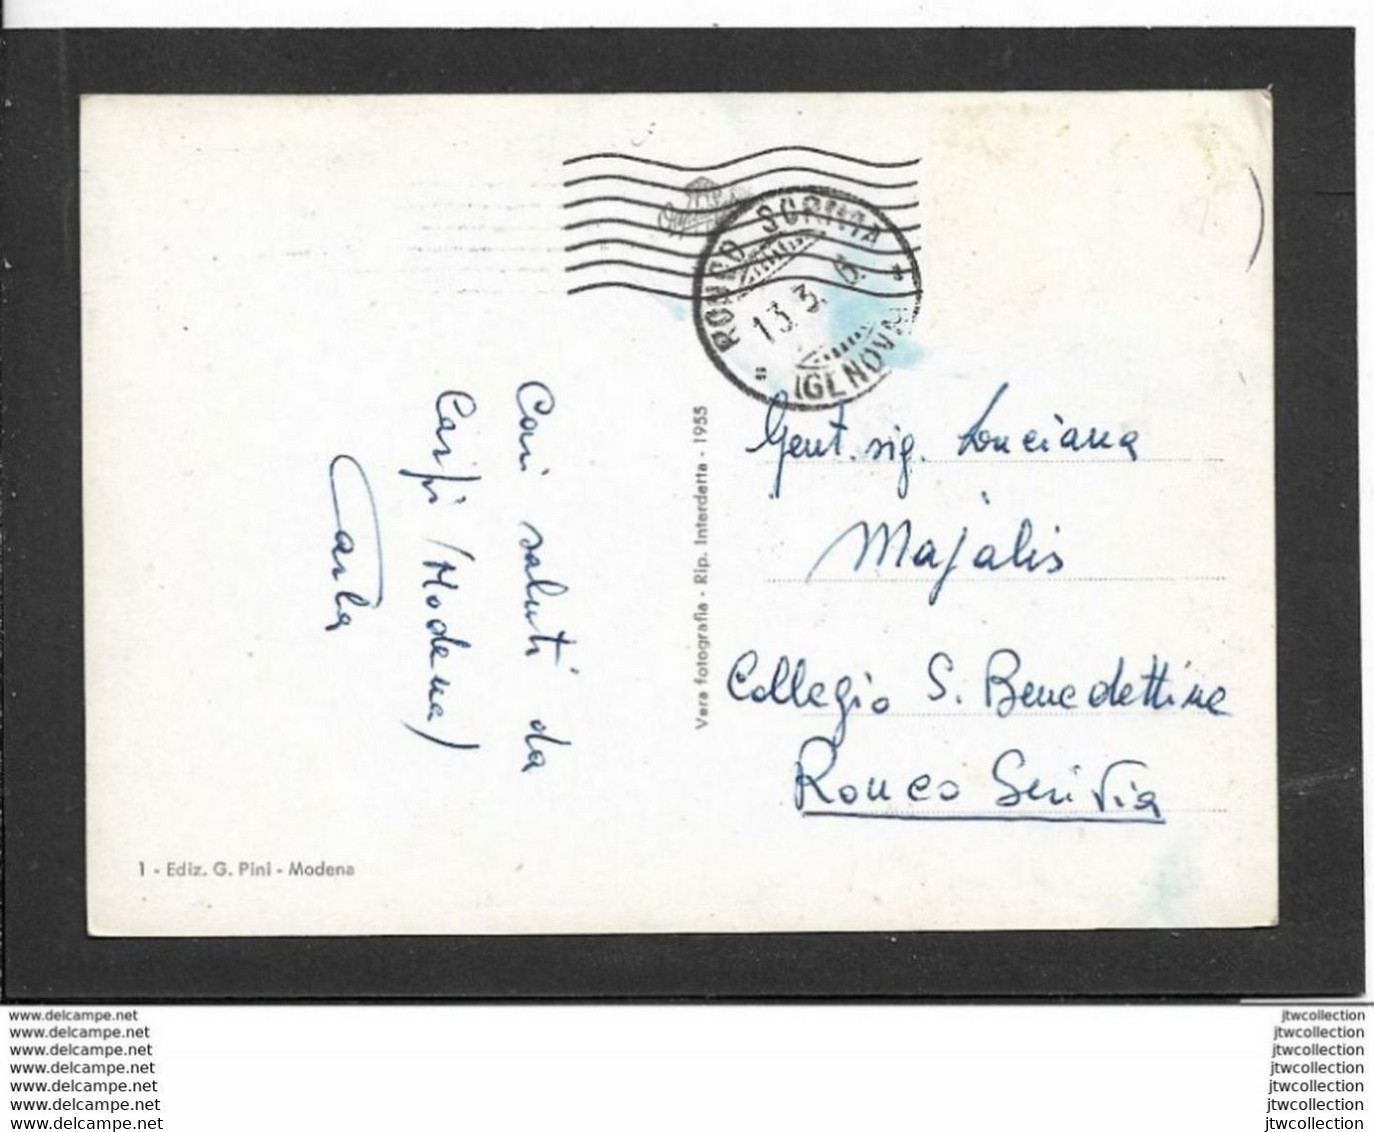 RONCO SCRIVIA
13.3.
(GENOVA)
Cari saluti da
Carpi (Modena)
Carla
Vera fotografia - Rip. Interdetta - 1955
Gent. sig. Luciana
Majalis
Collegio S. Benedettine
Ronco Scrivia
1 - Ediz. G. Pini - Modena
www.delcampe.net
www.delcampe.net
www.delcampe.net
www.delcampe.net
www.delcampe.net
www.delcampe.net
www.delcampe.net
jtwcollection
jtwcollection
jtwcollection
jtwcollection
jtwcollection
jtwcollection
jtwcollection